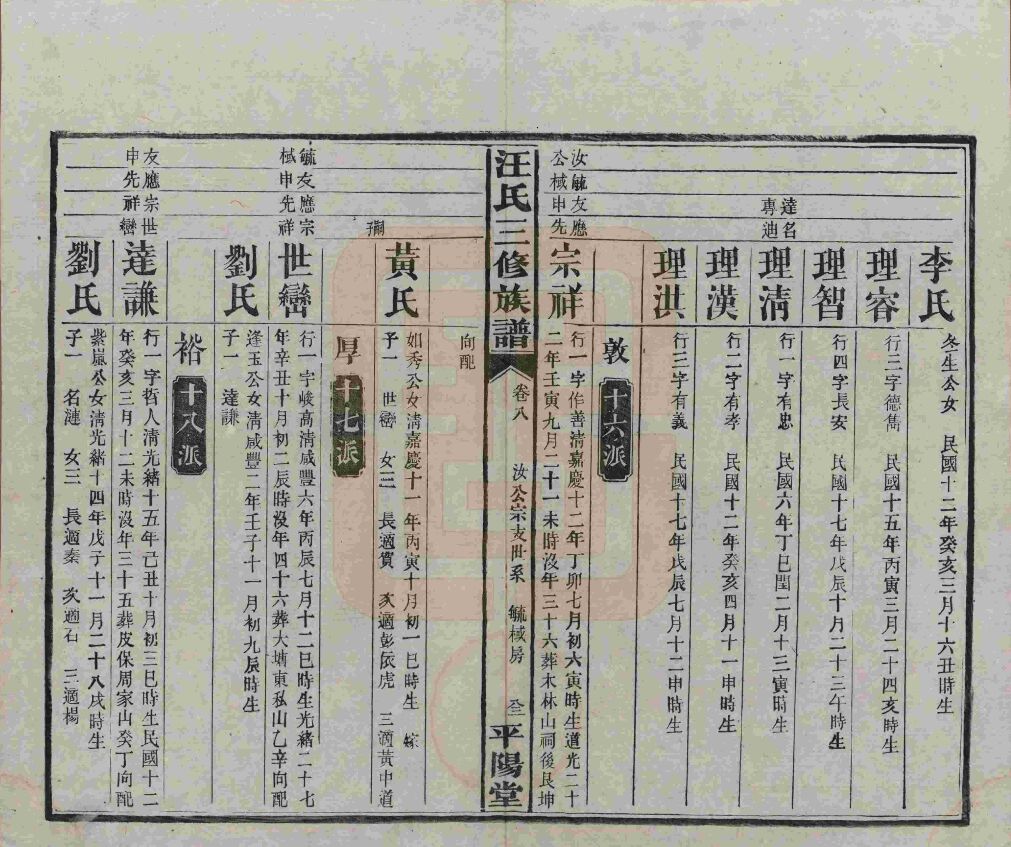 李氏
冬生公女 民國十二年癸亥三月十六丑時生
理睿
行三字德雋 民國十五年丙寅三月二十四亥時生
理智
行四字長安 民國十七年戊辰十月二十三午時生
達名
專迪
理清
行一字有忠 民國六年丁巳閏二月十三寅時生
理漢
行二字有孝 民國十二年癸亥四月十一申時生
理洪
行三字有義 民國十七年戊辰七月十二申時生
敦 十六派
汝毓友應
公棫申先
宗祥
行一字作善清嘉慶十二年丁卯七月初六寅時生道光二十
二年壬寅九月二十一未時沒年三十六葬木林山祠後艮坤
汪氏三修族譜 卷八 汝公宗支世系 毓棫房 平陽堂
向配
黃氏
如秀公女清嘉慶十一年丙寅十月初一巳時生 嫁
子一 世巒 女三 長適賀 次適彭依虎 三適黃中道
厚 十七派
毓友應宗
棫申先祥
世巒
行一字峻高清咸豐六年丙辰七月十二巳時生光緒二十七
年辛丑十月初二辰時沒年四十六葬大塘東私山乙辛向配
劉氏
逢玉公女清咸豐二年壬子十一月初九辰時生
子一 達謙
裕 十八派
友應宗世
申先祥巒
達謙
行一字哲人清光緒十五年己丑十月初三巳時生民國十二
年癸亥三月十二未時沒年三十五葬皮保周家山癸丁向配
劉氏
紫嵐公女清光緒十四年戊子十一月二十八戌時生
子一 名漣 女三 長適秦 次適石 三適楊